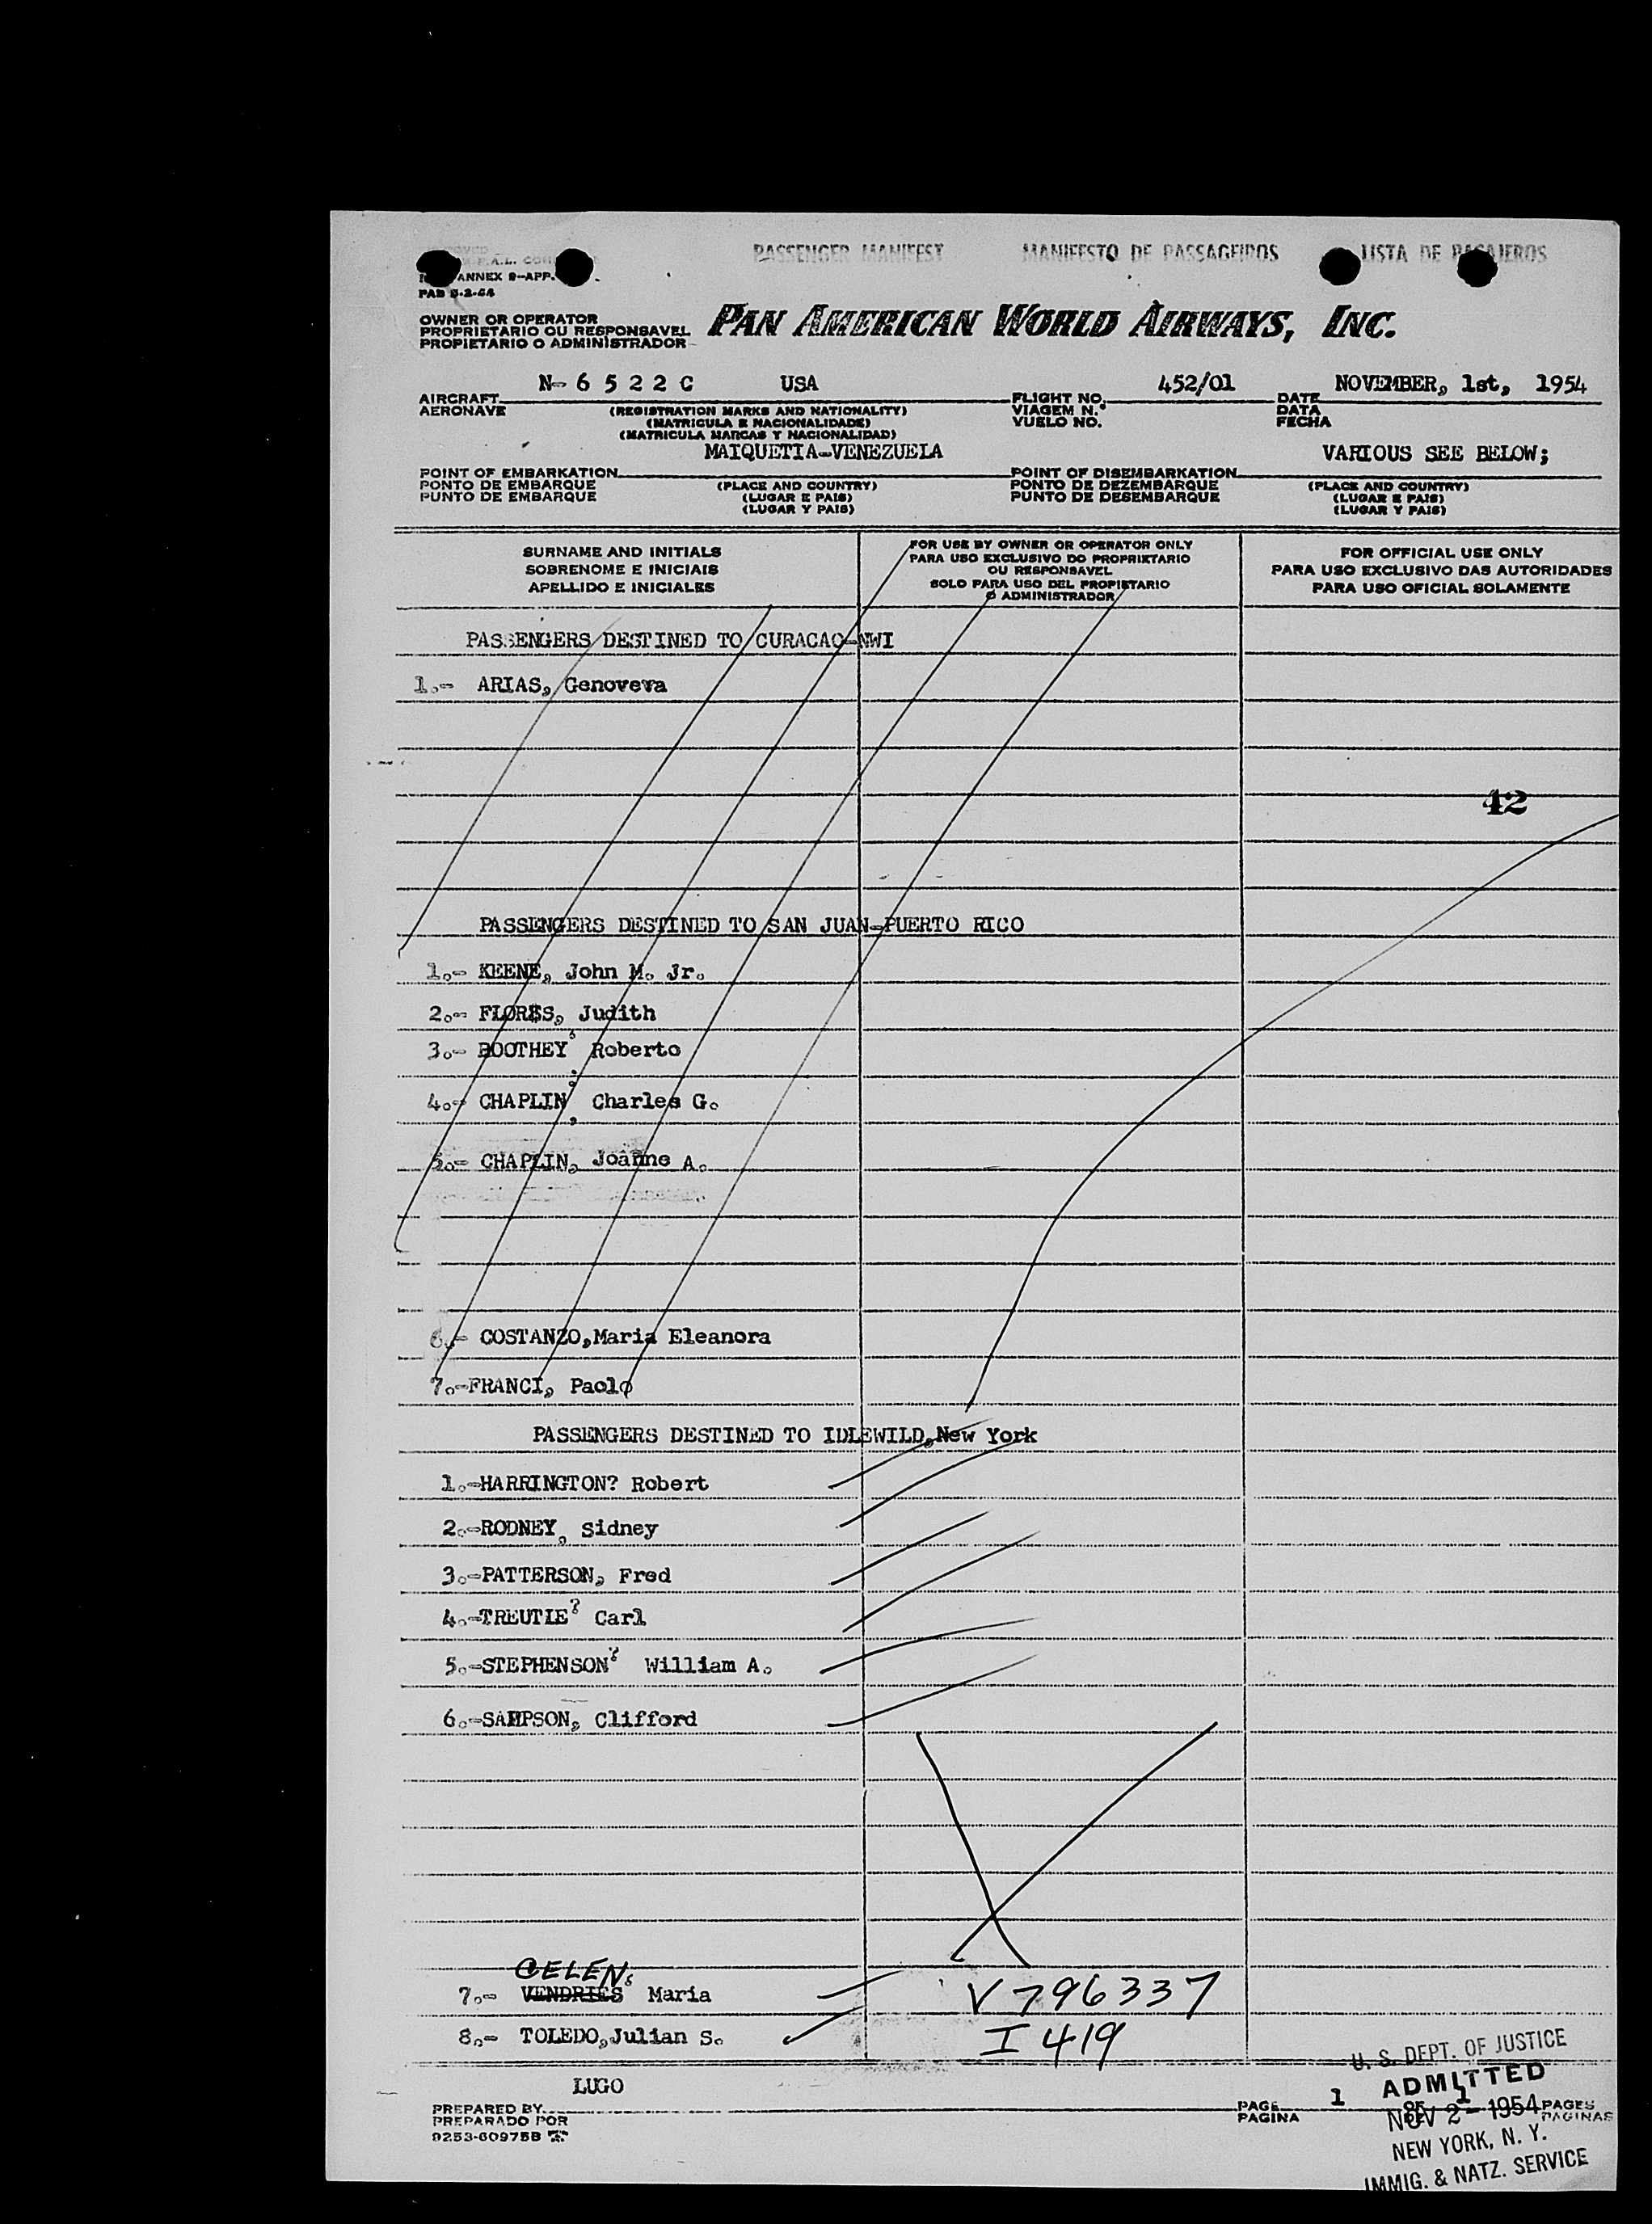 PASSENGER MANIFEST MANIFESTO DE PASSAGEIROS LISTA DE PASAJEROS
ANNEX 9-APP.
OWNER OR OPERATOR
PROPRIETARIO OU RESPONSAVEL
PROPIETARIO O ADMINISTRADOR
PAN AMERICAN WORLD AIRWAYS, INC.
N- 6 5 2 2 C USA 452/01 NOVEMBER, 1st, 1954
AIRCRAFT FLIGHT NO. DATE
AERONAVE (REGISTRATION MARKS AND NATIONALITY) VIAGEM N.º DATA
(MATRICULA E NACIONALIDADE) VUELO NO. FECHA
(MATRICULA MARCAS Y NACIONALIDAD)
MAIQUETIA-VENEZUELA VARIOUS SEE BELOW;
POINT OF EMBARKATION POINT OF DISEMBARKATION
PONTO DE EMBARQUE (PLACE AND COUNTRY) PONTO DE DEZEMBARQUE (PLACE AND COUNTRY)
PUNTO DE EMBARQUE (LUGAR E PAIS) PUNTO DE DESEMBARQUE (LUGAR E PAIS)
(LUGAR Y PAIS) (LUGAR Y PAIS)
SURNAME AND INITIALS
SOBRENOME E INICIAIS
APELLIDO E INICIALES
FOR USE BY OWNER OR OPERATOR ONLY
PARA USO EXCLUSIVO DO PROPRIETARIO
OU RESPONSAVEL
SOLO PARA USO DEL PROPIETARIO
O ADMINISTRADOR
FOR OFFICIAL USE ONLY
PARA USO EXCLUSIVO DAS AUTORIDADES
PARA USO OFICIAL SOLAMENTE
PASSENGERS DESTINED TO CURACAO-NWI
1.- ARIAS, Genoveva
42
PASSENGERS DESTINED TO SAN JUAN-PUERTO RICO
1.- KEENE, John M. Jr.
2.- FLORES, Judith
3.- BOOTHEY, Roberto
4.- CHAPLIN, Charles G.
5.- CHAPLIN, Joanne A.
6.- COSTANZO,Maria Eleanora
7.-FRANCI, Paolo
PASSENGERS DESTINED TO IDLEWILD,New York
1.-HARRINGTON? Robert
2.-RODNEY, Sidney
3.-PATTERSON, Fred
4.-TREUTIE? Carl
5.-STEPHENSON? William A.
6.-SAMPSON, Clifford
CELEN
7.- VENDRIES Maria V 796337
8.- TOLEDO,Julian S. I 419
LUGO
PREPARED BY
PREPARADO POR
PAGE 1 OF 1 PAGES
PAGINA DE PAGINAS
U. S. DEPT. OF JUSTICE
ADMITTED
NOV 2 - 1954
NEW YORK, N. Y.
IMMIG. & NATZ. SERVICE